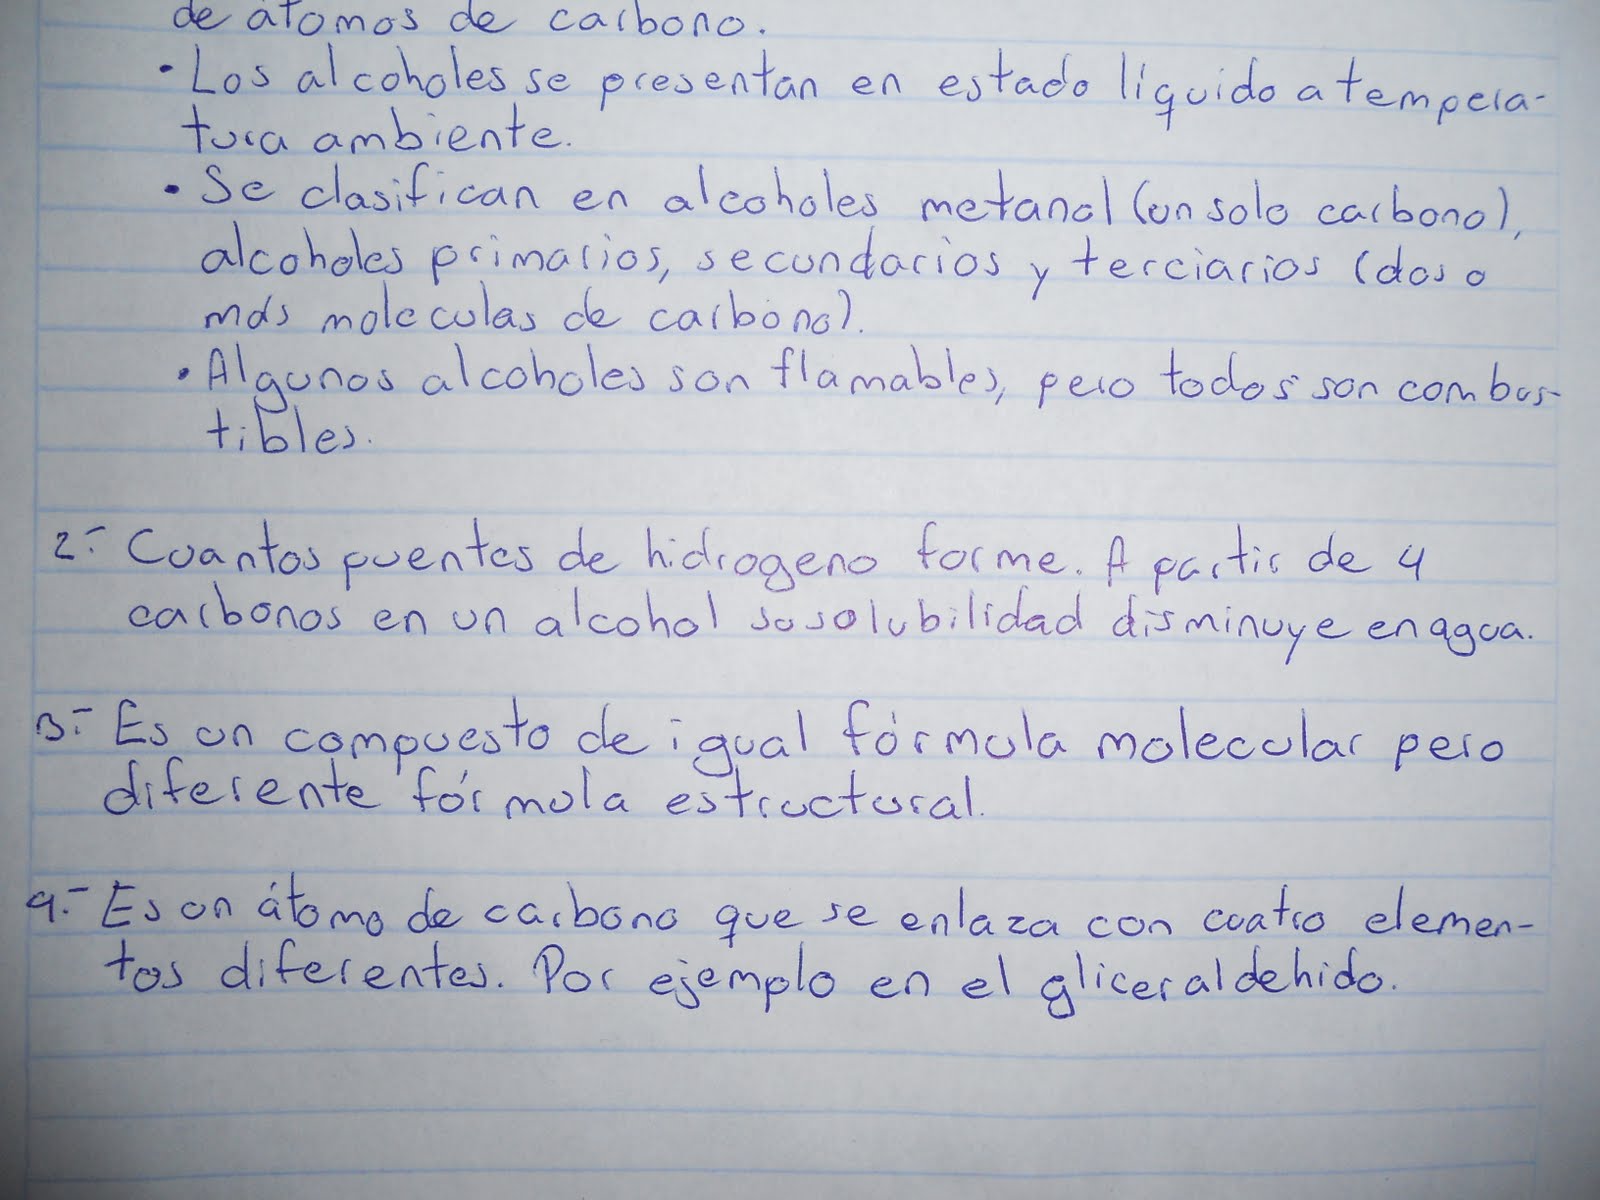 de átomos de carbono.
• Los alcoholes se presentan en estado líquido a tempera-
tura ambiente.
• Se clasifican en alcoholes metanol (un solo carbono),
alcoholes primarios, secundarios y terciarios (dos o
más moleculas de carbono).
• Algunos alcoholes son flamables, pero todos son combus-
tibles.
2.- Cuantos puentes de hidrogeno forme. A partir de 4
carbonos en un alcohol su solubilidad disminuye en agua.
3.- Es un compuesto de igual fórmula molecular pero
diferente fórmula estructural.
4.- Es un átomo de carbono que se enlaza con cuatro elemen-
tos diferentes. Por ejemplo en el gliceraldehido.